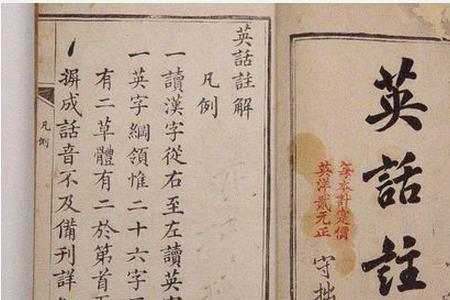 英話註
每本計定價
英洋貳元正
守拙
英話註解
凡例
一讀漢字從右至左讀英字
一英字綱領惟二十六字
有二草體有二於第首
摒成話音不及備刊詳
凡例